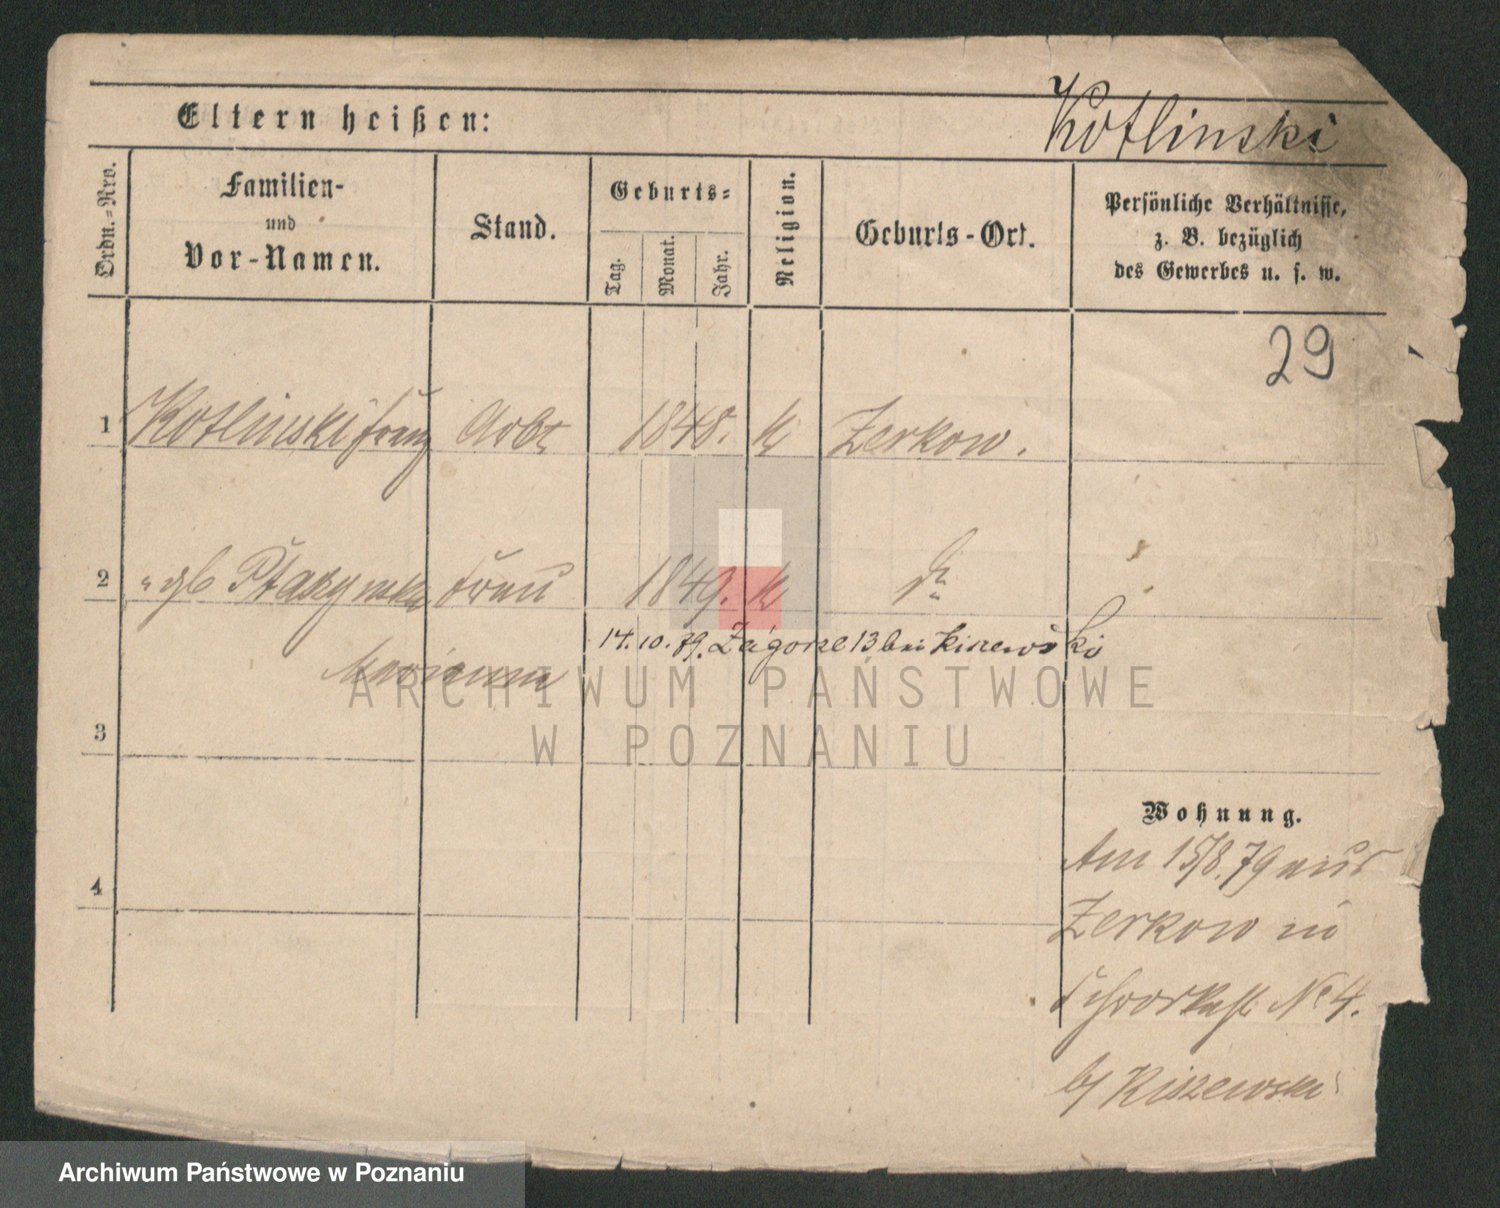 Eltern heißen:
Kotlinski
Ordn.=Nro.
Familien-
und
Vor-Namen.
Stand.
Geburts=
Tag.
Monat.
Jahr.
Religion.
Geburts-Ort.
Persönliche Verhältnisse,
z. B. bezüglich
des Gewerbes u. s. w.
29
1 Kotlinski Franz Arbt 1848. k Zerkow.
2 " gb Ptaszynska Frau 1849. k do
14.10.79. Zagorze 13 bei Kiszewski
Marianna
ARCHIWUM PAŃSTWOWE
W POZNANIU
3
Wohnung.
Am 15/8.79 aus
4
Zerkow in
No 4.
by Kiszewski
Archiwum Państwowe w Poznaniu